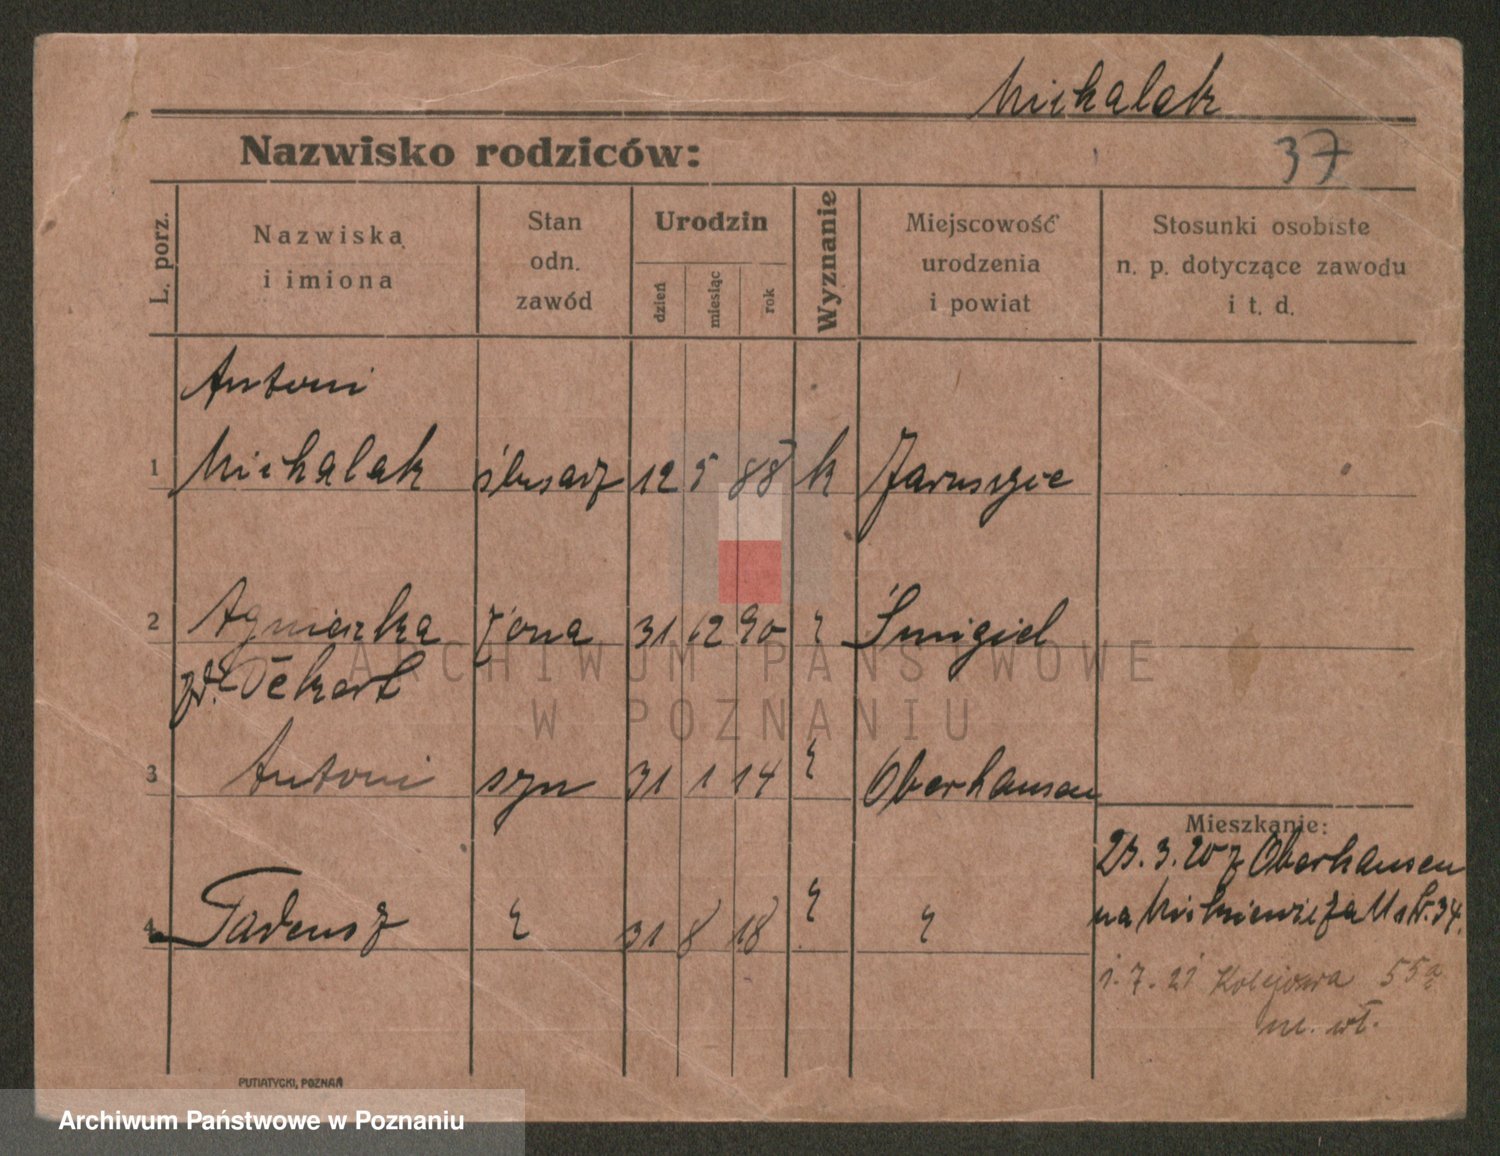 Michalak
Nazwisko rodziców:
37
L. porz.
Nazwiska
i imiona
Stan
odn.
zawód
Urodzin
dzień
miesiąc
rok
Wyznanie
Miejscowość
urodzenia
i powiat
Stosunki osobiste
n. p. dotyczące zawodu
i t. d.
Antoni
1 Michalak ślusarz 12 5 88 k
2 Agnieszka żona 31 12 90 Śmigiel
zd. Dekert
3 Antoni syn 31 1 14 Oberhausen
4 Tadeusz 31 8 18
Mieszkanie:
23.3.20 z Oberhausen
na Mickiewicza 34.
1.7.21 Kolejowa 55a
m. wł.
PUTIATYCKI, POZNAŃ
ARCHIWUM PAŃSTWOWE
W POZNANIU
Archiwum Państwowe w Poznaniu